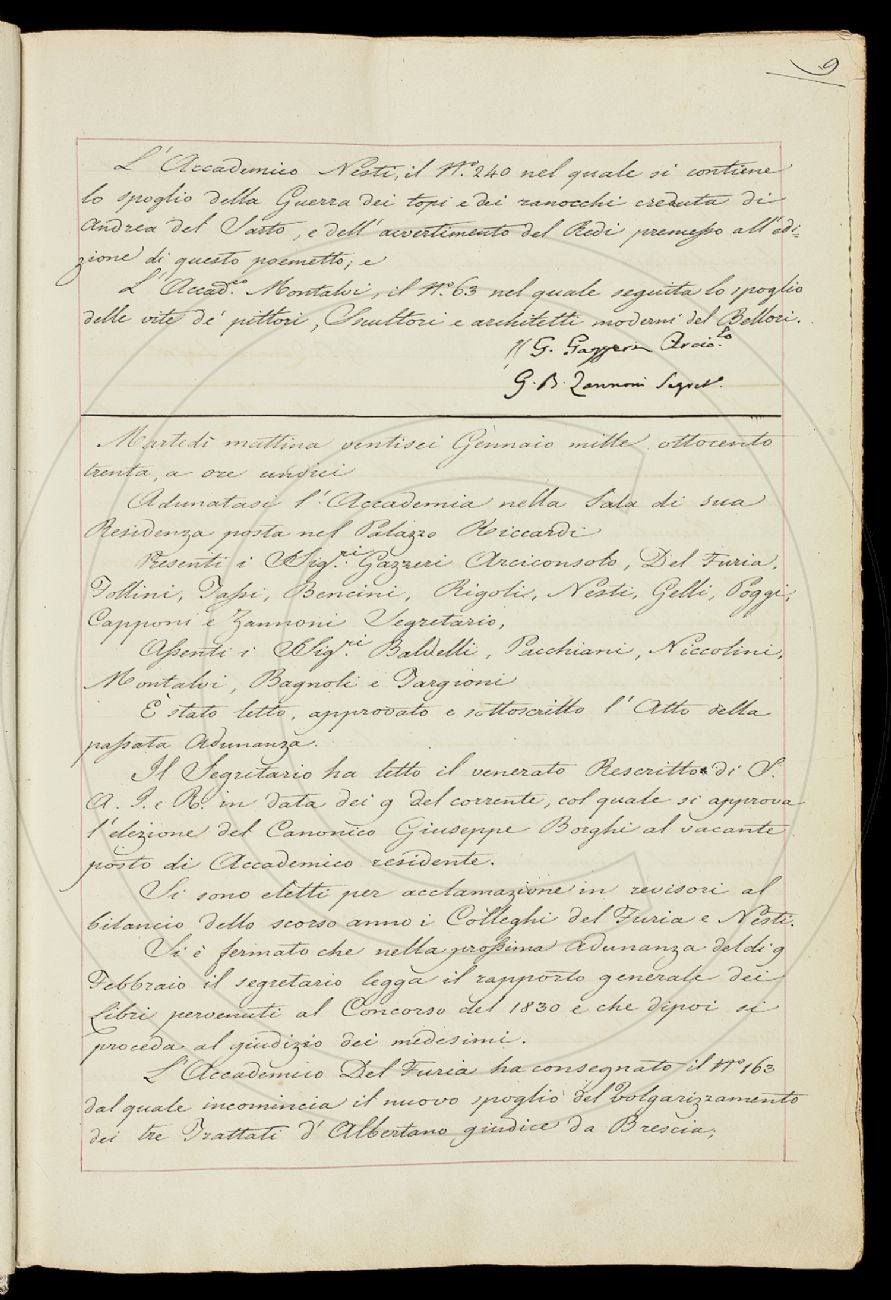 9
L'Accademico Nesti, il N.º 240 nel quale si contiene
lo spoglio della Guerra dei topi e dei ranocchi creduta di
Andrea del Sarto, e dell'avvertimento del Redi premesso all'edi=
zione di questo poemetto; e
L'Accad.co Montalvi, il N.º 63 nel quale seguita lo spoglio
delle vite de' pittori, Scultori e architetti moderni del Bellori.
G. Gazzeri Arcic.lo
G. B. Zannoni Segret.º
Martedì mattina ventisei Gennaio mille ottocento
trenta, a ore undici
Adunatasi l'Accademia nella Sala di sua
Residenza posta nel Palazzo Riccardi
Presenti i SSig.ri Gazzeri Arciconsolo, Del Furia,
Follini, Tassi, Bencini, Rigoli, Nesti, Gelli, Poggi,
Capponi e Zannoni Segretario,
Assenti i SSig.ri Baldelli, Pacchiani, Niccolini,
Montalvi, Bagnoli e Targioni
È stato letto, approvato e sottoscritto l'Atto della
passata Adunanza.
Il Segretario ha letto il venerato Rescritto di S.
A. I. e R. in data dei 9 del corrente, col quale si approva
l'elezione del Canonico Giuseppe Borghi al vacante
posto di Accademico residente.
Si sono eletti per acclamazione in revisori al
bilancio dello scorso anno i Colleghi del Furia e Nesti.
Si è fermato che nella prossima Adunanza del dì 9
Febbraio il segretario legga il rapporto generale dei
Libri pervenuti al Concorso del 1830 e che dipoi si
proceda al giudizio dei medesimi.
L'Accademico Del Furia ha consegnato il N.º 163
dal quale incomincia il nuovo spoglio del Volgarizzamento
dei tre Trattati d'Albertano giudice da Brescia;